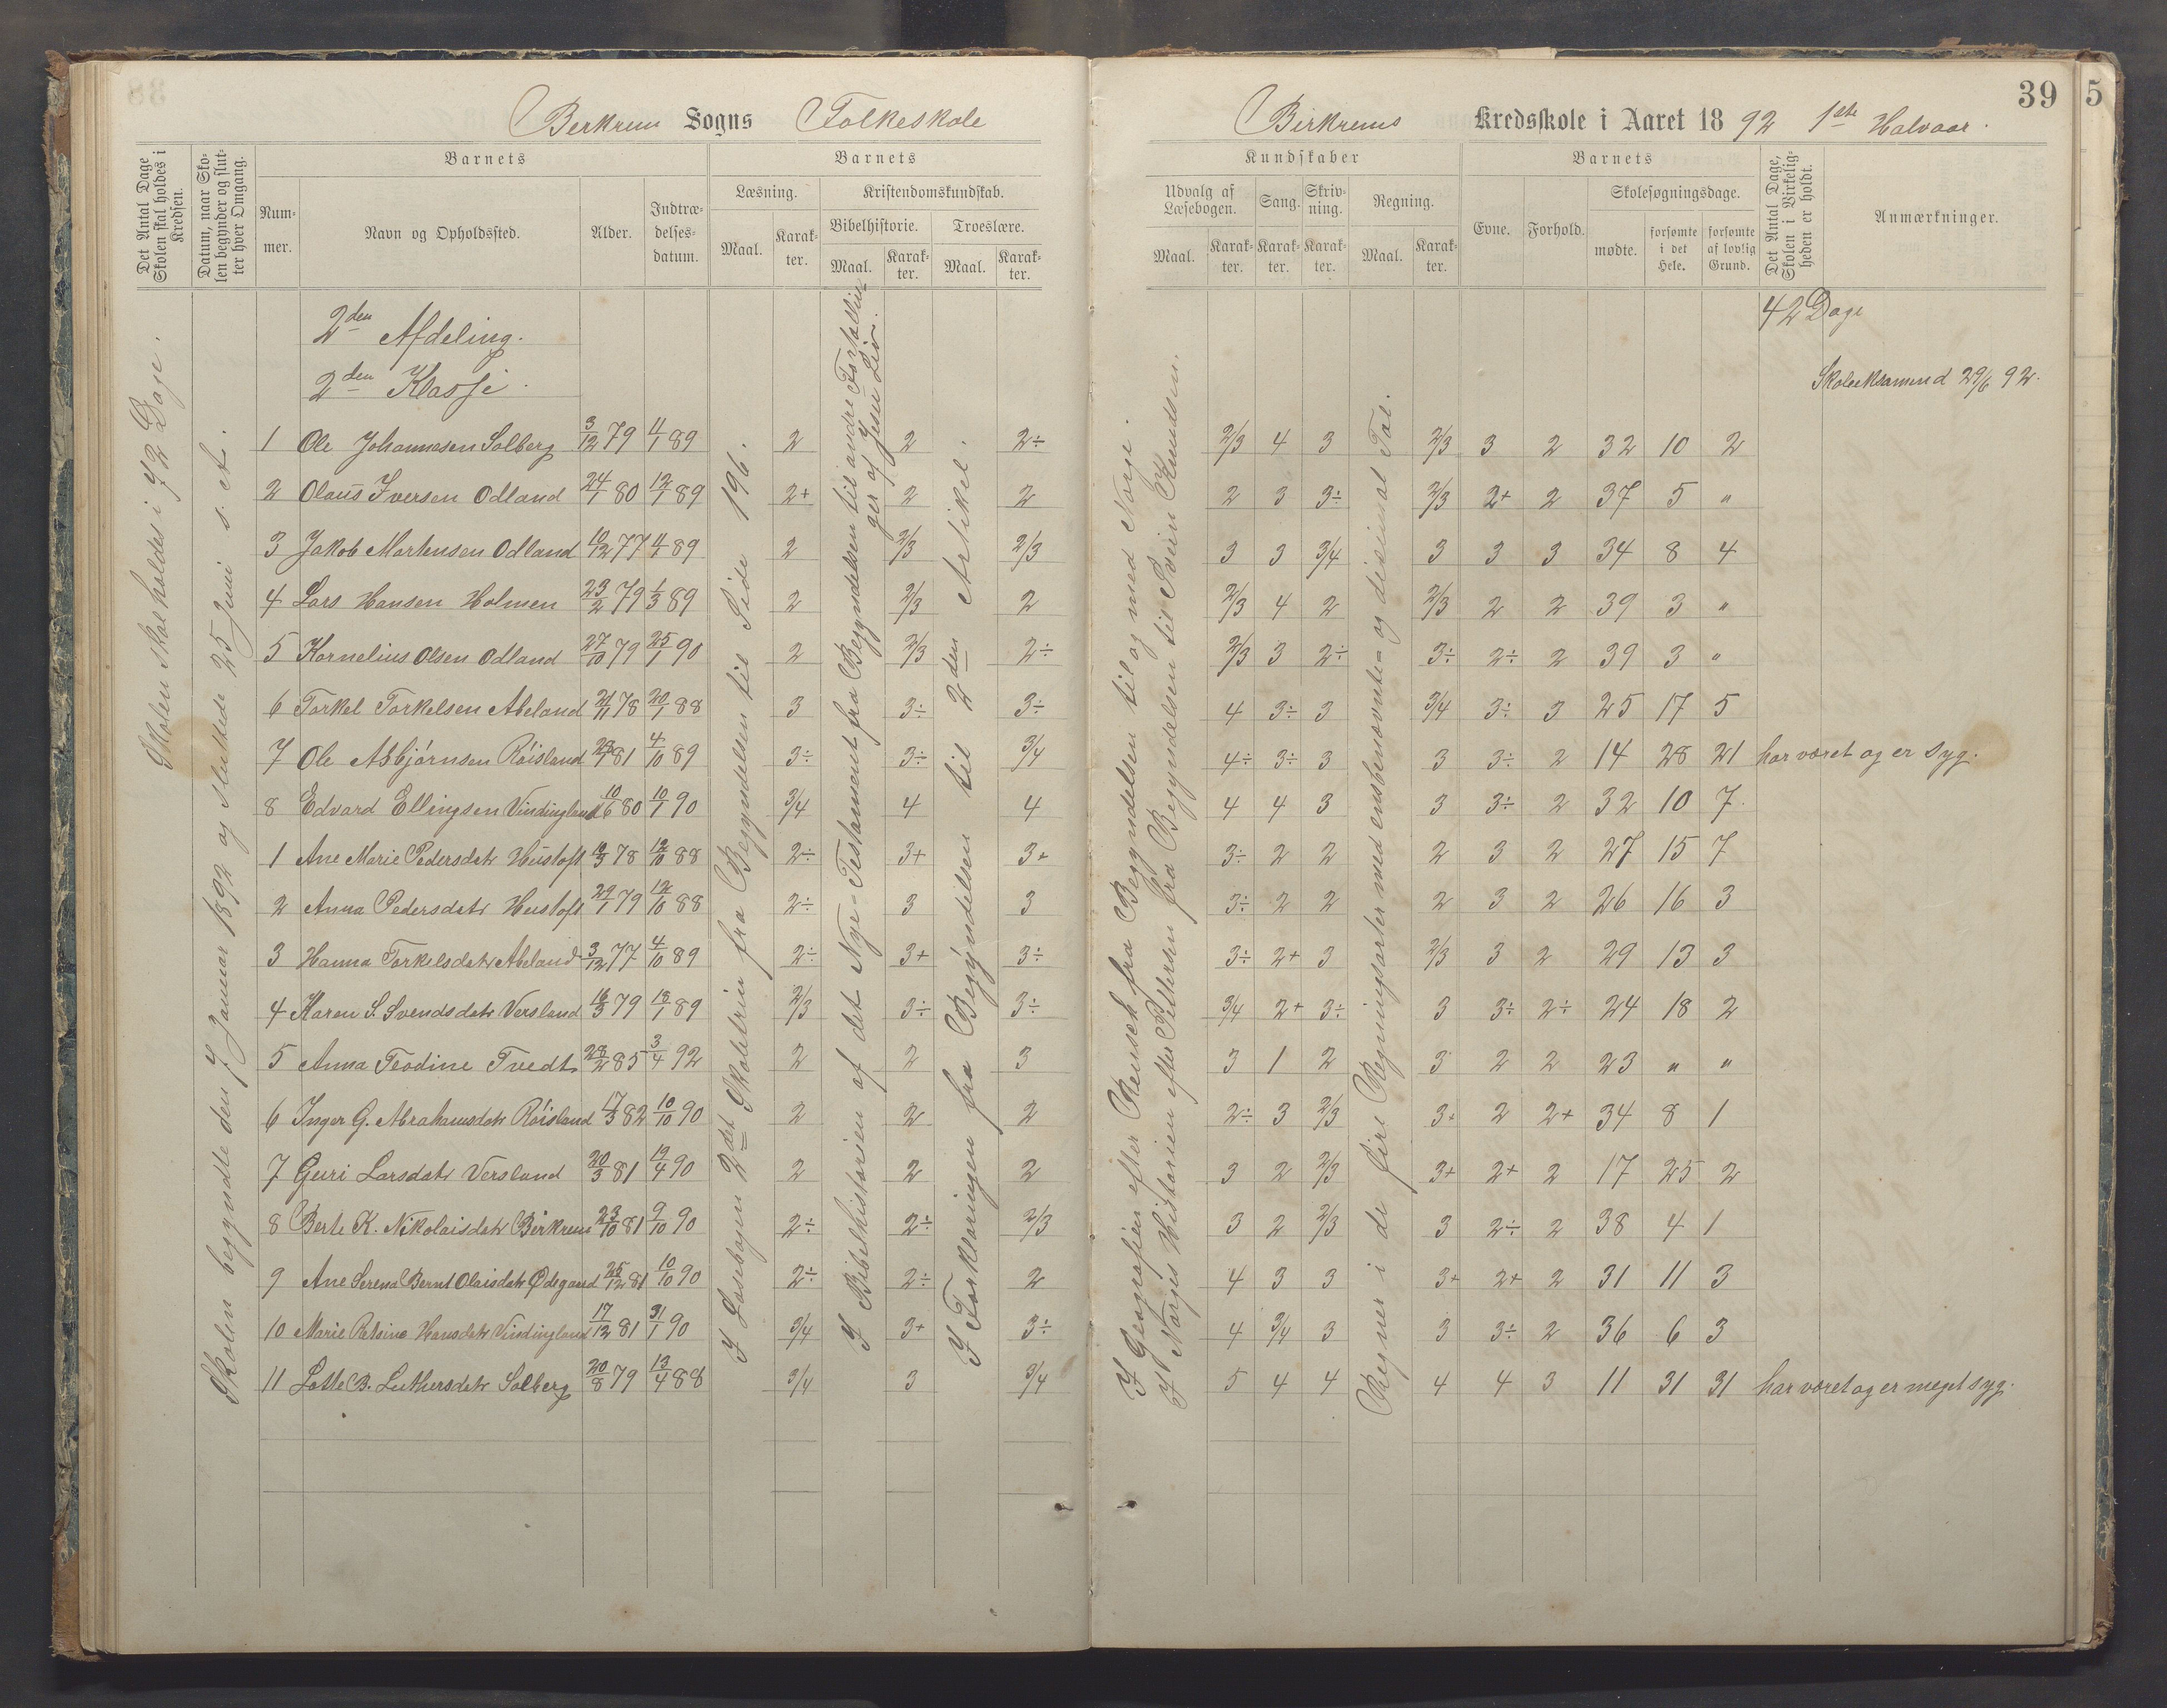 Berkrem Sogns Folkeskole
Birkrems Kredsskole i Aaret 1892 1ste Halvaar.
39
5
Det Antal Dage Skolen skal holdes i Kredsen.
Datum, naar Skolen begynder og slutter hver Omgang.
Barnets
Nummer.
Navn og Opholdssted.
Alder.
Indtrædelsesdatum.
Barnets
Læsning.
Maal.
Karakter.
Kristendomskundskab.
Bibelhistorie.
Maal.
Karakter.
Troeslære.
Maal.
Karakter.
Kundskaber
Udvalg af Læsebogen.
Maal.
Karakter.
Sang.
Karakter.
Skrivning.
Karakter.
Regning.
Maal.
Karakter.
Barnets
Evne.
Forhold.
Skolesøgningsdage.
mødte.
forsømte i det Hele.
forsømte af lovlig Grund.
Det Antal Dage, Skolen i Virkeligheden er holdt.
Anmærkninger.
Skolen skal holdes i 72 Dage.
Skolen begyndte den 7 Januar 1892 og sluttede 25 Juni s. A.
2den Afdeling.
2den Klasse.
42 Dage
Skoleeksamend 29/6 92.
I Læsebogen 2det Skoletrin fra Begyndelsen til Side 196.
I Bibelhistorien af det Nye-Testament fra Begyndelsen til andre Fortællinger af Jesu Liv.
I Forklaringen fra Begyndelsen til 2den Artikel.
I Geografien efter Rensek fra Begyndelsen til og med Norge.
I Norges Historien efter Petersen fra Begyndelsen til Svein Knudsen.
Regner i de fire Regningsarter med ensbenævnte og desimal Tal.
1 Ole Johannesen Solberg 3/12 79 4/1 89 2 2 2÷ 2/3 4 3 2/3 3 2 32 10 2
2 Olaus Iversen Odland 24/1 80 12/1 89 2+ 2 2 2 3 3÷ 2/3 2+ 2 37 5 "
3 Jakob Martensen Odland 10/12 77 11/1 89 2 2/3 2/3 3 3 3/4 3 3 3 34 8 4
4 Lars Hansen Holmen 23/2 79 1/3 89 2 2/3 2 2/3 4 2 2/3 2 2 39 3 "
5 Kornelius Olsen Odland 27/10 79 25/1 90 2 2/3 2÷ 2/3 3 2÷ 3÷ 2÷ 2 39 3 "
6 Torkel Torkelsen Abeland 21/11 78 20/1 88 3 3÷ 3÷ 4 3÷ 3 3/4 3÷ 3 25 17 5
7 Ole Asbjørnsen Røisland 81 4/10 89 3÷ 3÷ 3/4 4÷ 3÷ 3 3 3÷ 2 14 28 21 har været og er syg.
8 Edvard Ellingsen Vindingland 10/6 80 10/1 90 3/4 4 4 4 4 3 3 3÷ 2 32 10 7.
1 Ane Marie Pedersdatr Hustoft 19/3 78 12/10 88 2÷ 3+ 3+ 3÷ 2 2 2 3 2 27 15 7
2 Anna Pedersdatr Hustoft 29/1 79 12/10 88 2÷ 3 3 3÷ 2 2 2 3 2 26 16 3
3 Hanna Torkelsdatr Abeland 3/12 77 4/10 89 2÷ 3+ 3÷ 3÷ 2+ 3 2/3 3 2 29 13 3
4 Karen S. Svendsdatr Versland 16/3 79 18/1 89 2/3 3÷ 3÷ 3/4 2+ 3÷ 3 3÷ 2÷ 24 18 2
5 Anna Teodine Tvedt 28/2 85 3/4 92 2 2 3 3 1 2 3 2 2 23 " "
6 Inger G. Abrahamsdatr Røisland 17/3 82 10/10 90 2 2 2 2÷ 3 2/3 3+ 2 2+ 34 8 1
7 Guri Larsdatr Versland 20/3 81 19/4 90 2 2 2 3 2 2/3 3+ 2+ 2 17 25 2
8 Berte K. Nikolaisdatr Birkrem 23/10 81 9/10 90 2÷ 2÷ 2/3 3 2 2/3 3 2÷ 2 38 4 1
9 Ane Serena Bernt Olaisdatr Ødegaard 25/12 81 10/10 90 2÷ 2÷ 2 4 3 3 3+ 2+ 2 31 11 3
10 Marie Retsine Hansdatr Vindingland 17/12 81 31/1 90 3/4 3+ 3÷ 4 3/4 3 3 3÷ 2 36 6 3
11 Lotte B. Luthersdatr Solberg 20/8 79 13/4 88 3/4 3 3/4 5 4 4 4 4 3 11 31 31 har været og er meget syg.